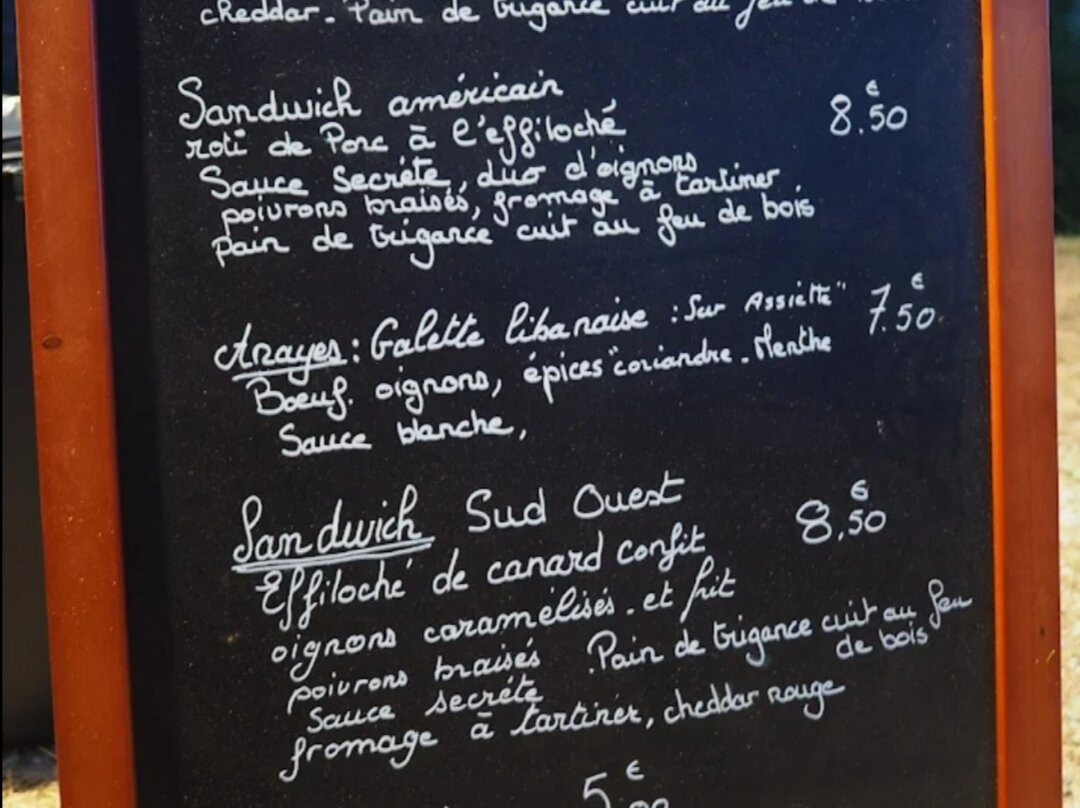 cheddar. Pain de trigance cuit au feu de
Sandwich américain
8.50€
roti de Porc à l'effiloché
Sauce secréte, duo d'oignons
poivrons braisés, fromage à tartiner
pain de trigance cuit au feu de bois
Arayes: Galette libanaise : Sur Assiette" 7.50€
Boeuf. oignons, épices "coriandre. Menthe
Sauce blanche,
Sandwich Sud Ouest
8,50€
Effiloché de canard confit
oignons caramélisés. et frit
poivrons braisés. Pain de trigance cuit au feu
de bois
Sauce secréte
fromage à tartiner, cheddar rouge
5.00€